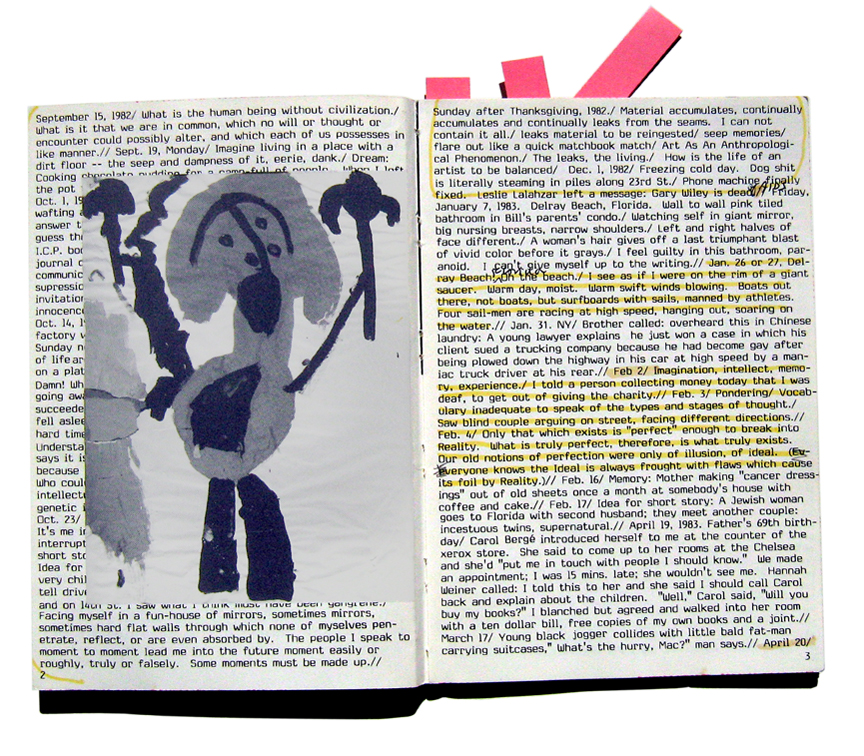 September 15, 1982/ What is the human being without civilization./
What is it that we are in common, which no will or thought or
encounter could possibly alter, and which each of us possesses in
like manner.// Sept. 19, Monday/ Imagine living in a place with a
dirt floor -- the seep and dampness of it, eerie, dank./ Dream:
Cooking chocolate pudding for a camp-full of people. When I left
the pot
Oct. 1, 19
wafting a
answer t
guess th
I.C.P. bo
journal o
communic
supressio
invitation
innocence
Oct. 14, 1
factory w
Sunday n
of life ar
on a plat
Damn! Wh
going aw
succeede
fell aslee
hard time
Understa
says it is
because
Who coul
intellectu
genetic i
Oct. 23/
It's me i
interrupt
short sto
Idea for
very chil
tell drive
and on 14th St. I saw what I think must have been gangrene./
Facing myself in a fun-house of mirrors, sometimes mirrors,
sometimes hard flat walls through which none of myselves pen-
etrate, reflect, or are even absorbed by. The people I speak to
moment to moment lead me into the future moment easily or
roughly, truly or falsely. Some moments must be made up.//
2
Sunday after Thanksgiving, 1982./ Material accumulates, continually
accumulates and continually leaks from the seams. I can not
contain it all./ leaks material to be reingested/ seep memories/
flare out like a quick matchbook match/ Art As An Anthropologi-
cal Phenomenon./ The leaks, the living./ How is the life of an
artist to be balanced/ Dec. 1, 1982/ Freezing cold day. Dog shit
is literally steaming in piles along 23rd St./ Phone machine finally
fixed. Leslie Lalahzar left a message: Gary Wiley is dead// Friday,
January 7, 1983. Delray Beach, Florida. Wall to wall pink tiled
bathroom in Bill's parents' condo./ Watching self in giant mirror,
big nursing breasts, narrow shoulders./ Left and right halves of
face different./ A woman's hair gives off a last triumphant blast
of vivid color before it grays./ I feel guilty in this bathroom, par-
anoid. I can't give myself up to the writing.// Jan. 26 or 27, Del-
ray Beach, On the beach./ I see as if I were on the rim of a giant
saucer. Warm day, moist. Warm swift winds blowing. Boats out
there, not boats, but surfboards with sails, manned by athletes.
Four sail-men are racing at high speed, hanging out, soaring on
the water.// Jan. 31. NY/ Brother called: overheard this in Chinese
laundry: A young lawyer explains he just won a case in which his
client sued a trucking company because he had become gay after
being plowed down the highway in his car at high speed by a man-
iac truck driver at his rear.// Feb 2/ Imagination, intellect, memo-
ry, experience./ I told a person collecting money today that I was
deaf, to get out of giving the charity.// Feb. 3/ Pondering/ Vocab-
ulary inadequate to speak of the types and stages of thought./
Saw blind couple arguing on street, facing different directions.//
Feb. 4/ Only that which exists is "perfect" enough to break into
Reality. What is truly perfect, therefore, is what truly exists.
Our old notions of perfection were only of illusion, of ideal. (Ev-
everyone knows the Ideal is always frought with flaws which cause
its foil by Reality.)// Feb. 16/ Memory: Mother making "cancer dress-
ings" out of old sheets once a month at somebody's house with
coffee and cake.// Feb. 17/ Idea for short story: A Jewish woman
goes to Florida with second husband; they meet another couple:
incestuous twins, supernatural.// April 19, 1983. Father's 69th birth-
day/ Carol Bergé introduced herself to me at the counter of the
xerox store. She said to come up to her rooms at the Chelsea
and she'd "put me in touch with people I should know." We made
an appointment; I was 15 mins. late; she wouldn't see me. Hannah
Weiner called: I told this to her and she said I should call Carol
back and explain about the children. "Well," Carol said, "Will you
buy my books?" I blanched but agreed and walked into her room
with a ten dollar bill, free copies of my own books and a joint.//
March 17/ Young black jogger collides with little bald fat-man
carrying suitcases," What's the hurry, Mac?" man says.// April 20/
3